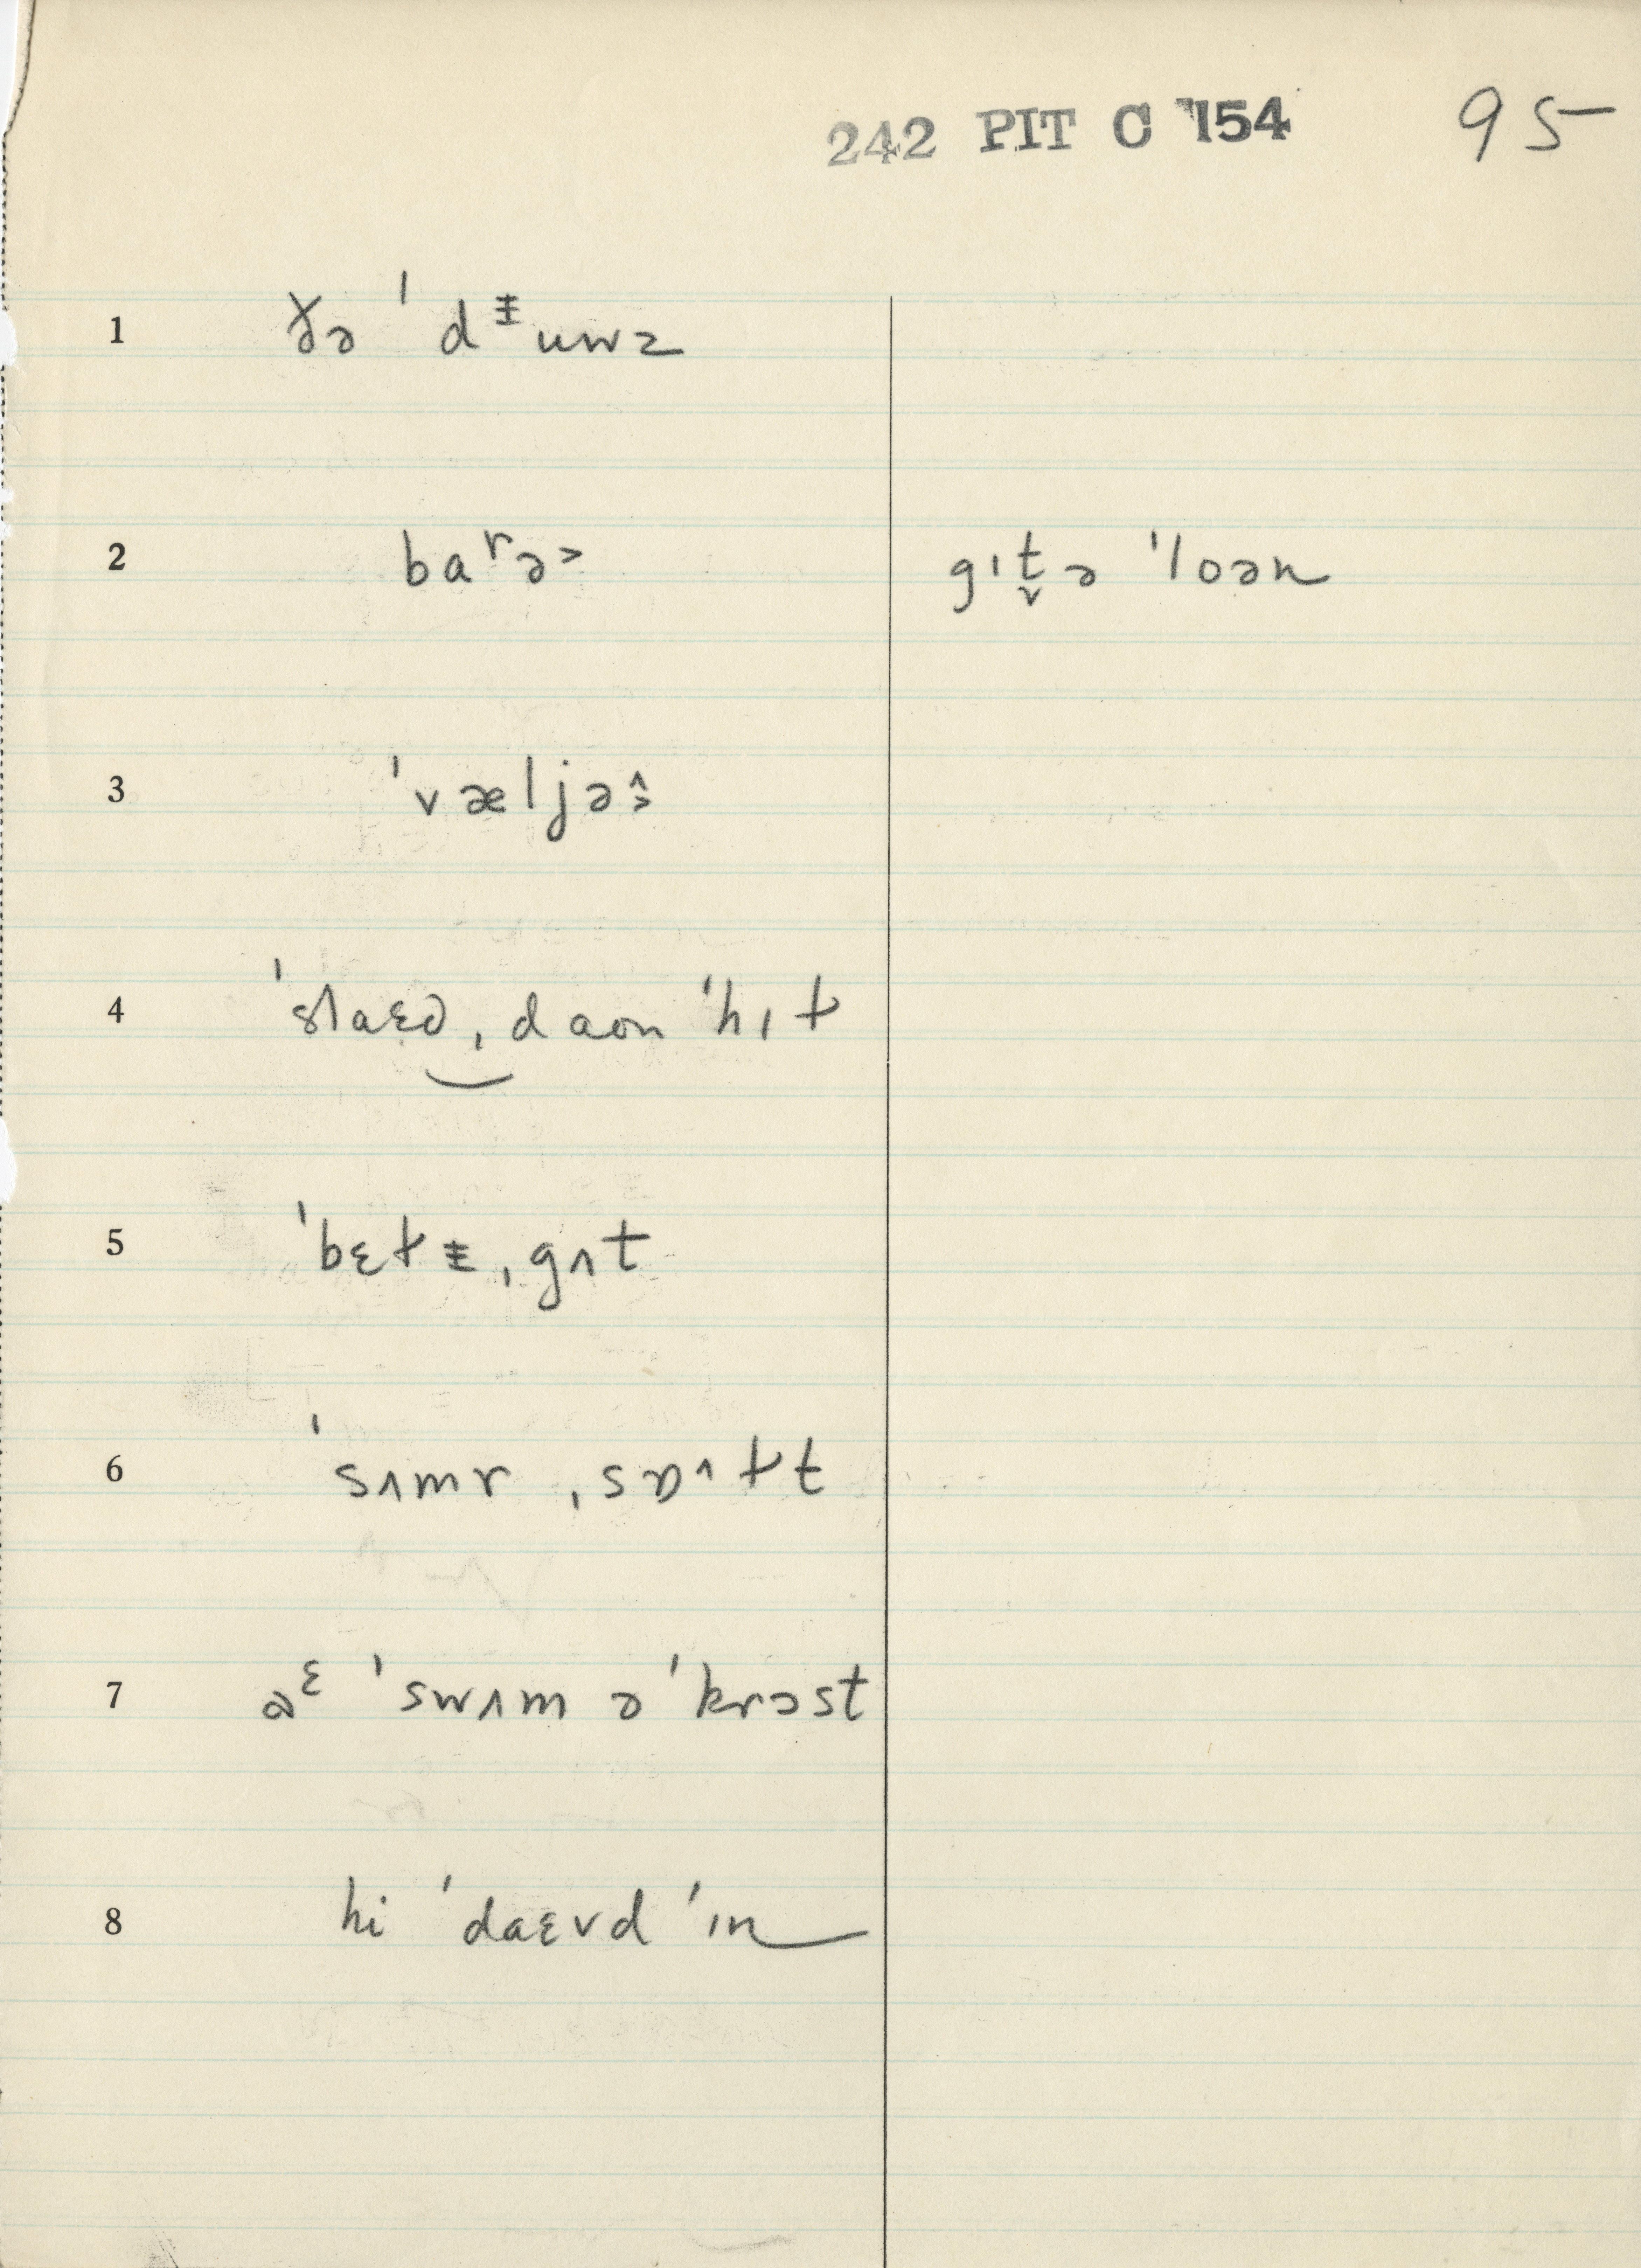 242 PIT C 154 95
1 ðə ˈdᵻuwz
2 baʳə˃ gɪt̬ə ˈloən
3 ˈvæljə˄˃
4 ˈslaɛd ˌdaon ˈhɪɫ
5 ˈbɛɫᵻ ˌgʌt
6 ˈsʌmr ˌsɒ˄ɫt
7 aᵋ ˈswʌm əˈkrɔst
8 hi ˈdaɛvd ˈɪn